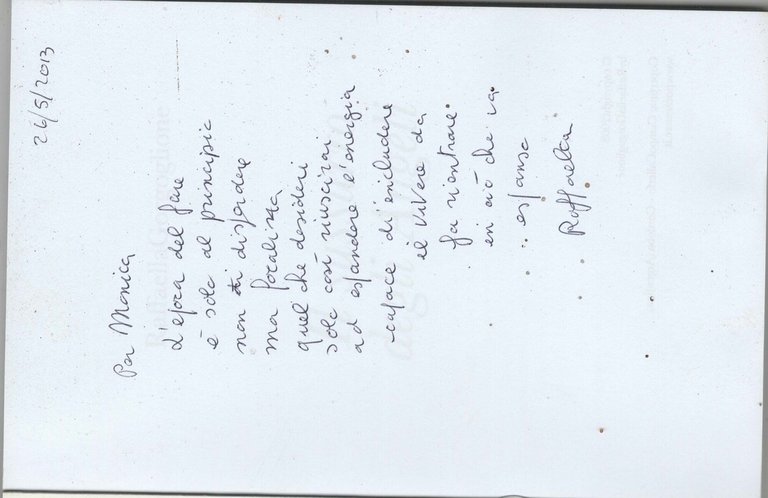 26/5/2013
Per Monica
L'epoca del fare
è solo al principio
non ti disperdere
ma focalizza
quel che desideri
solo così riuscirai
ad espandere l'energia
capace di includere
il vivere da
far rientrare
in ciò che va
espanso
Raffaella